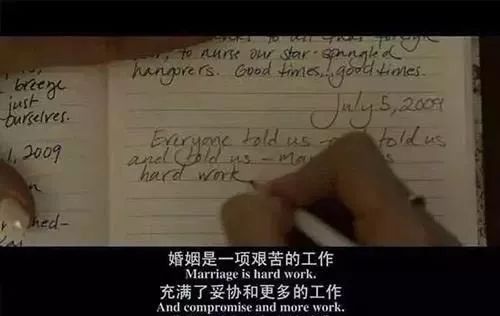 breeze
just
ourselves.
2009
to all that
to nurse our star-spangled
hangovers. Good times, good times.
July 5, 2009
Everyone told us - told us
and told us -
hard work
婚姻是一项艰苦的工作
Marriage is hard work.
充满了妥协和更多的工作
And compromise and more work.